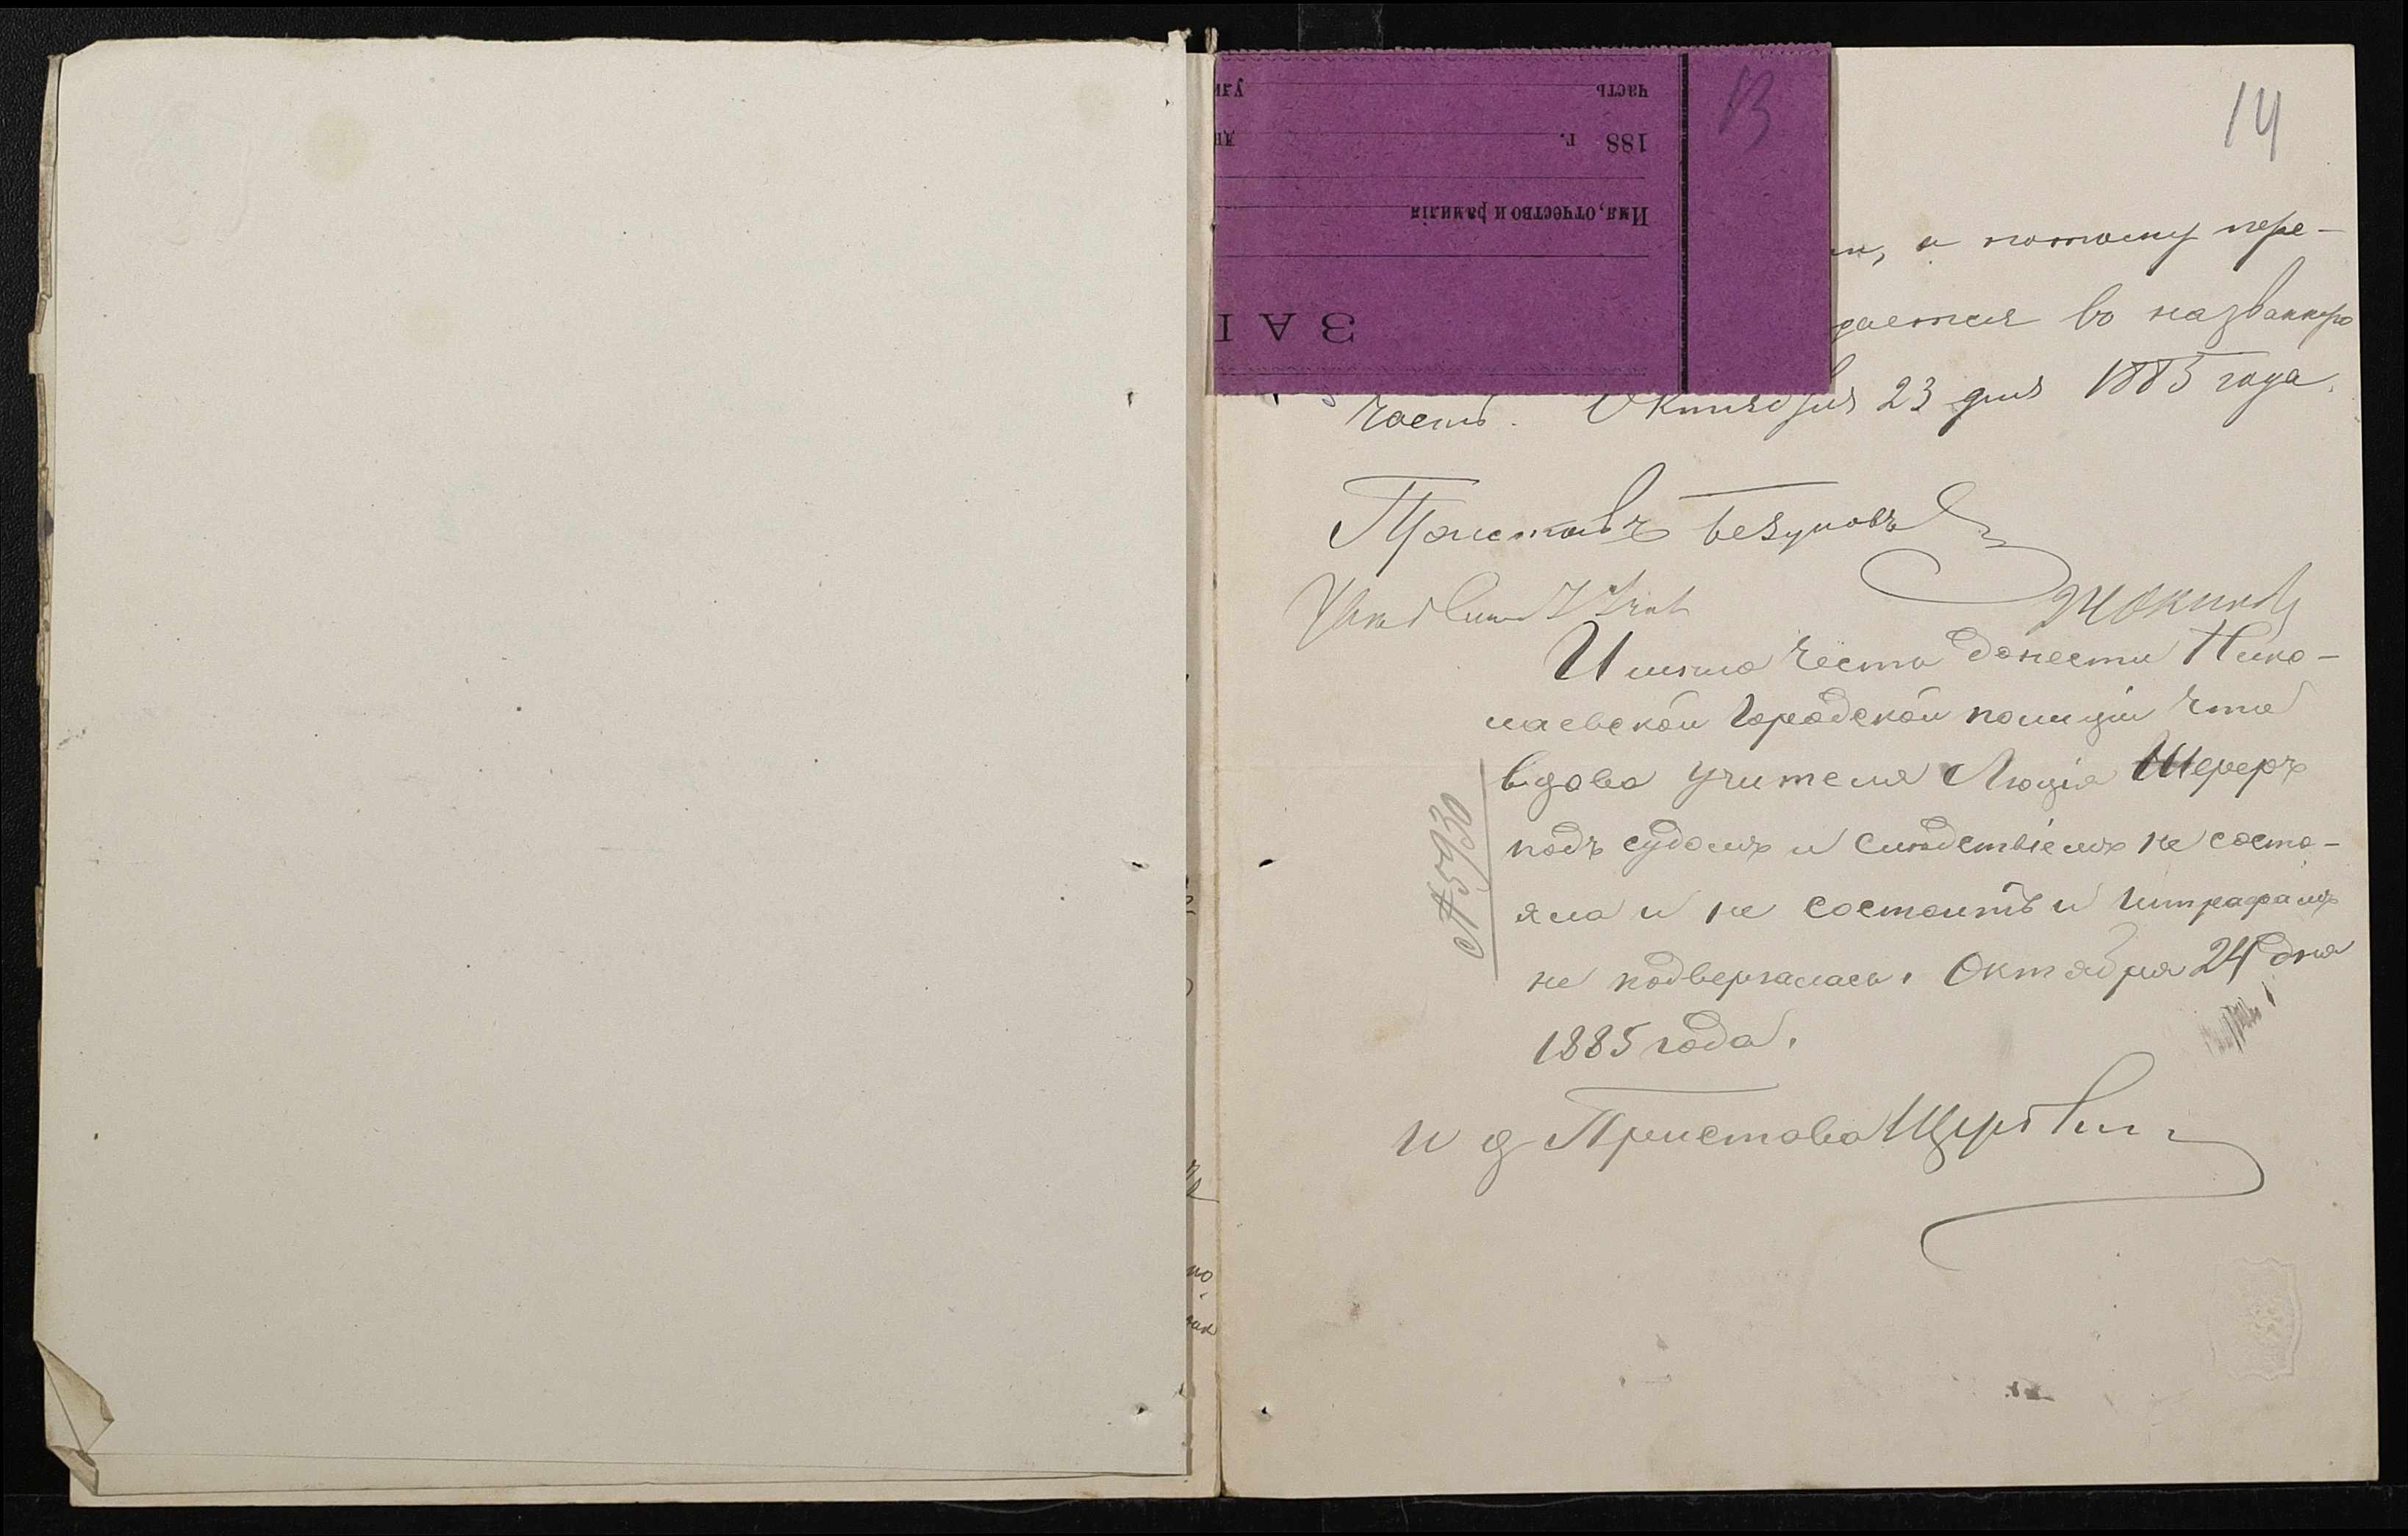 14
13
часть
188 г.
Имя, отчество и фамилія
ЗАП
а потому пере-
дается во названную
часть. Октября 23 дня 1885 года.
Приставъ
Имею честь донести Нико-
лаевской Городской полиціи что
вдова учителя Люція Шереръ
подъ судомъ и следствіемъ не состо-
яла и не состоитъ и штрафамъ
не подвергалась. Октября 24 дня
1885 года.
№ 5930
И д Пристава